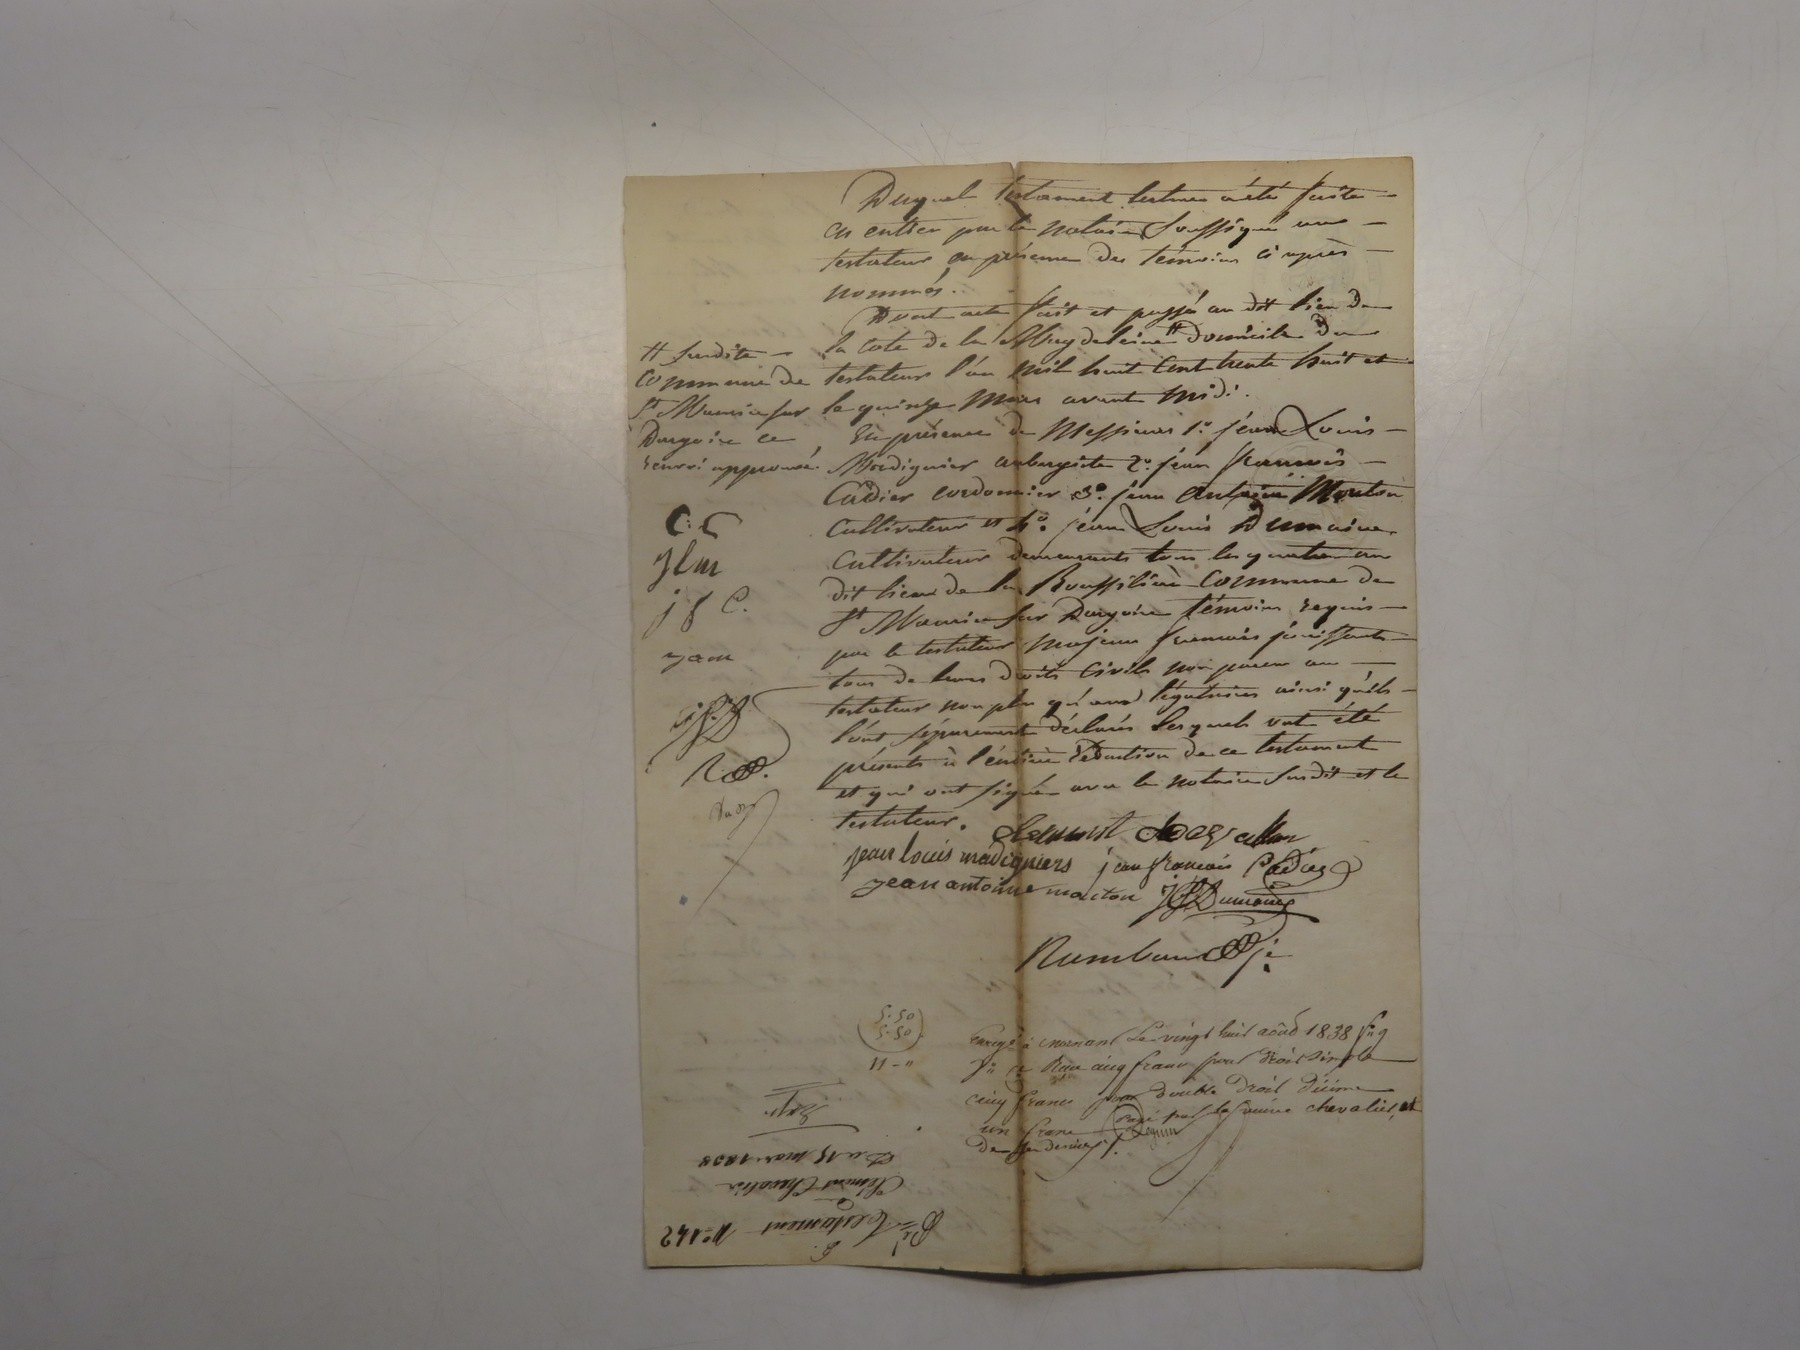 Duquel testament lecture a été faite
en entier par le notaire soussigné au
testateur en présence des témoins ci après
nommés.
Dont acte fait et passé au dit lieu de
la cote de la Magdeleine # domicile du
testateur l'an mil huit cent trente huit et
le quinze Mars avant midi.
En présence de Messieurs 1º. jean Louis
Madignier aubergiste 2º. jean francois
Cadier cordonnier 3º. jean antoine Moulon
Cultivateur et 4º. jean Louis Dumaine
Cultivateur demeurants tous les quatre au
dit lieu de la Roussilière Commune de
St. Maurice sur Dargoire témoins requis
par le testateur majeurs francais jouissants
tous de leurs droits Civils non parens au
testateur non plus qu'aux légataires ainsi qu'ils
l'ont séparement déclarés lesquels ont été
présents à l'entière rédaction de ce testament
et qui ont signé avec le notaire susdit et le
testateur.
# susdite
Commune de
St. Maurice sur
Dargoire ce
renvoi approuvé.
C. C
jlm
j f C.
jam
jLD
R
jean louis madigniers jean francois Cadier
jean antoine moulon JLDumaine
5.50
5.50
11 - "
Enregé à mornant Le vingt huit août 1838 fº 9
Vº Reçu cinq francs pour droit simple
cinq francs pour double droit décime
un franc payé par la veuve chevalier, et
Du 15 mars 1838
Clément Chevalier
Testament Nº 142